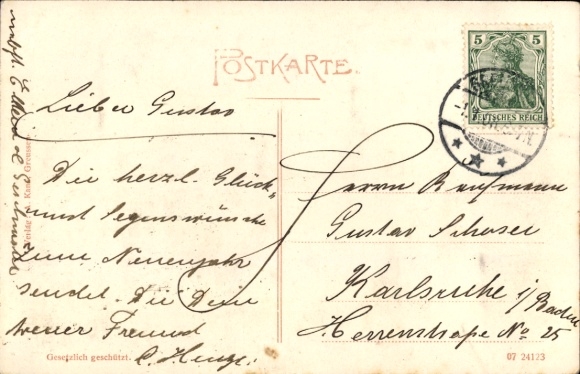 POSTKARTE
5 5
DEUTSCHES REICH
Lieber Gustav
Die herzl. Glück-
und Segenswünsche
zum Neuenjahr
sendet Dir Dein
treuer Freund
Herrn Kaufmann
Gustav
Karlsruhe i/Baden
Herrenstraße No 25
Gesetzlich geschützt.
07 24123